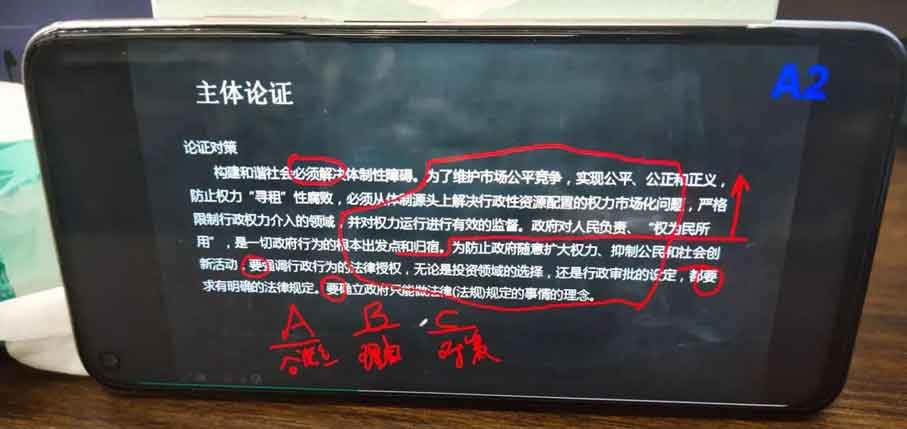 A2
主体论证
论证对策
构建和谐社会必须解决体制性障碍。为了维护市场公平竞争，实现公平、公正和正义，
防止权力“寻租”性腐败，必须从体制源头上解决行政性资源配置的权力市场化问题，严格
限制行政权力介入的领域，并对权力运行进行有效的监督。政府对人民负责、“权为民所
用”，是一切政府行为的根本出发点和归宿。为防止政府随意扩大权力、抑制公民和社会创
新活动，要强调行政行为的法律授权，无论是投资领域的选择，还是行政审批的设定，都要
求有明确的法律规定。要确立政府只能做法律(法规)规定的事情的理念。
A B C
对策